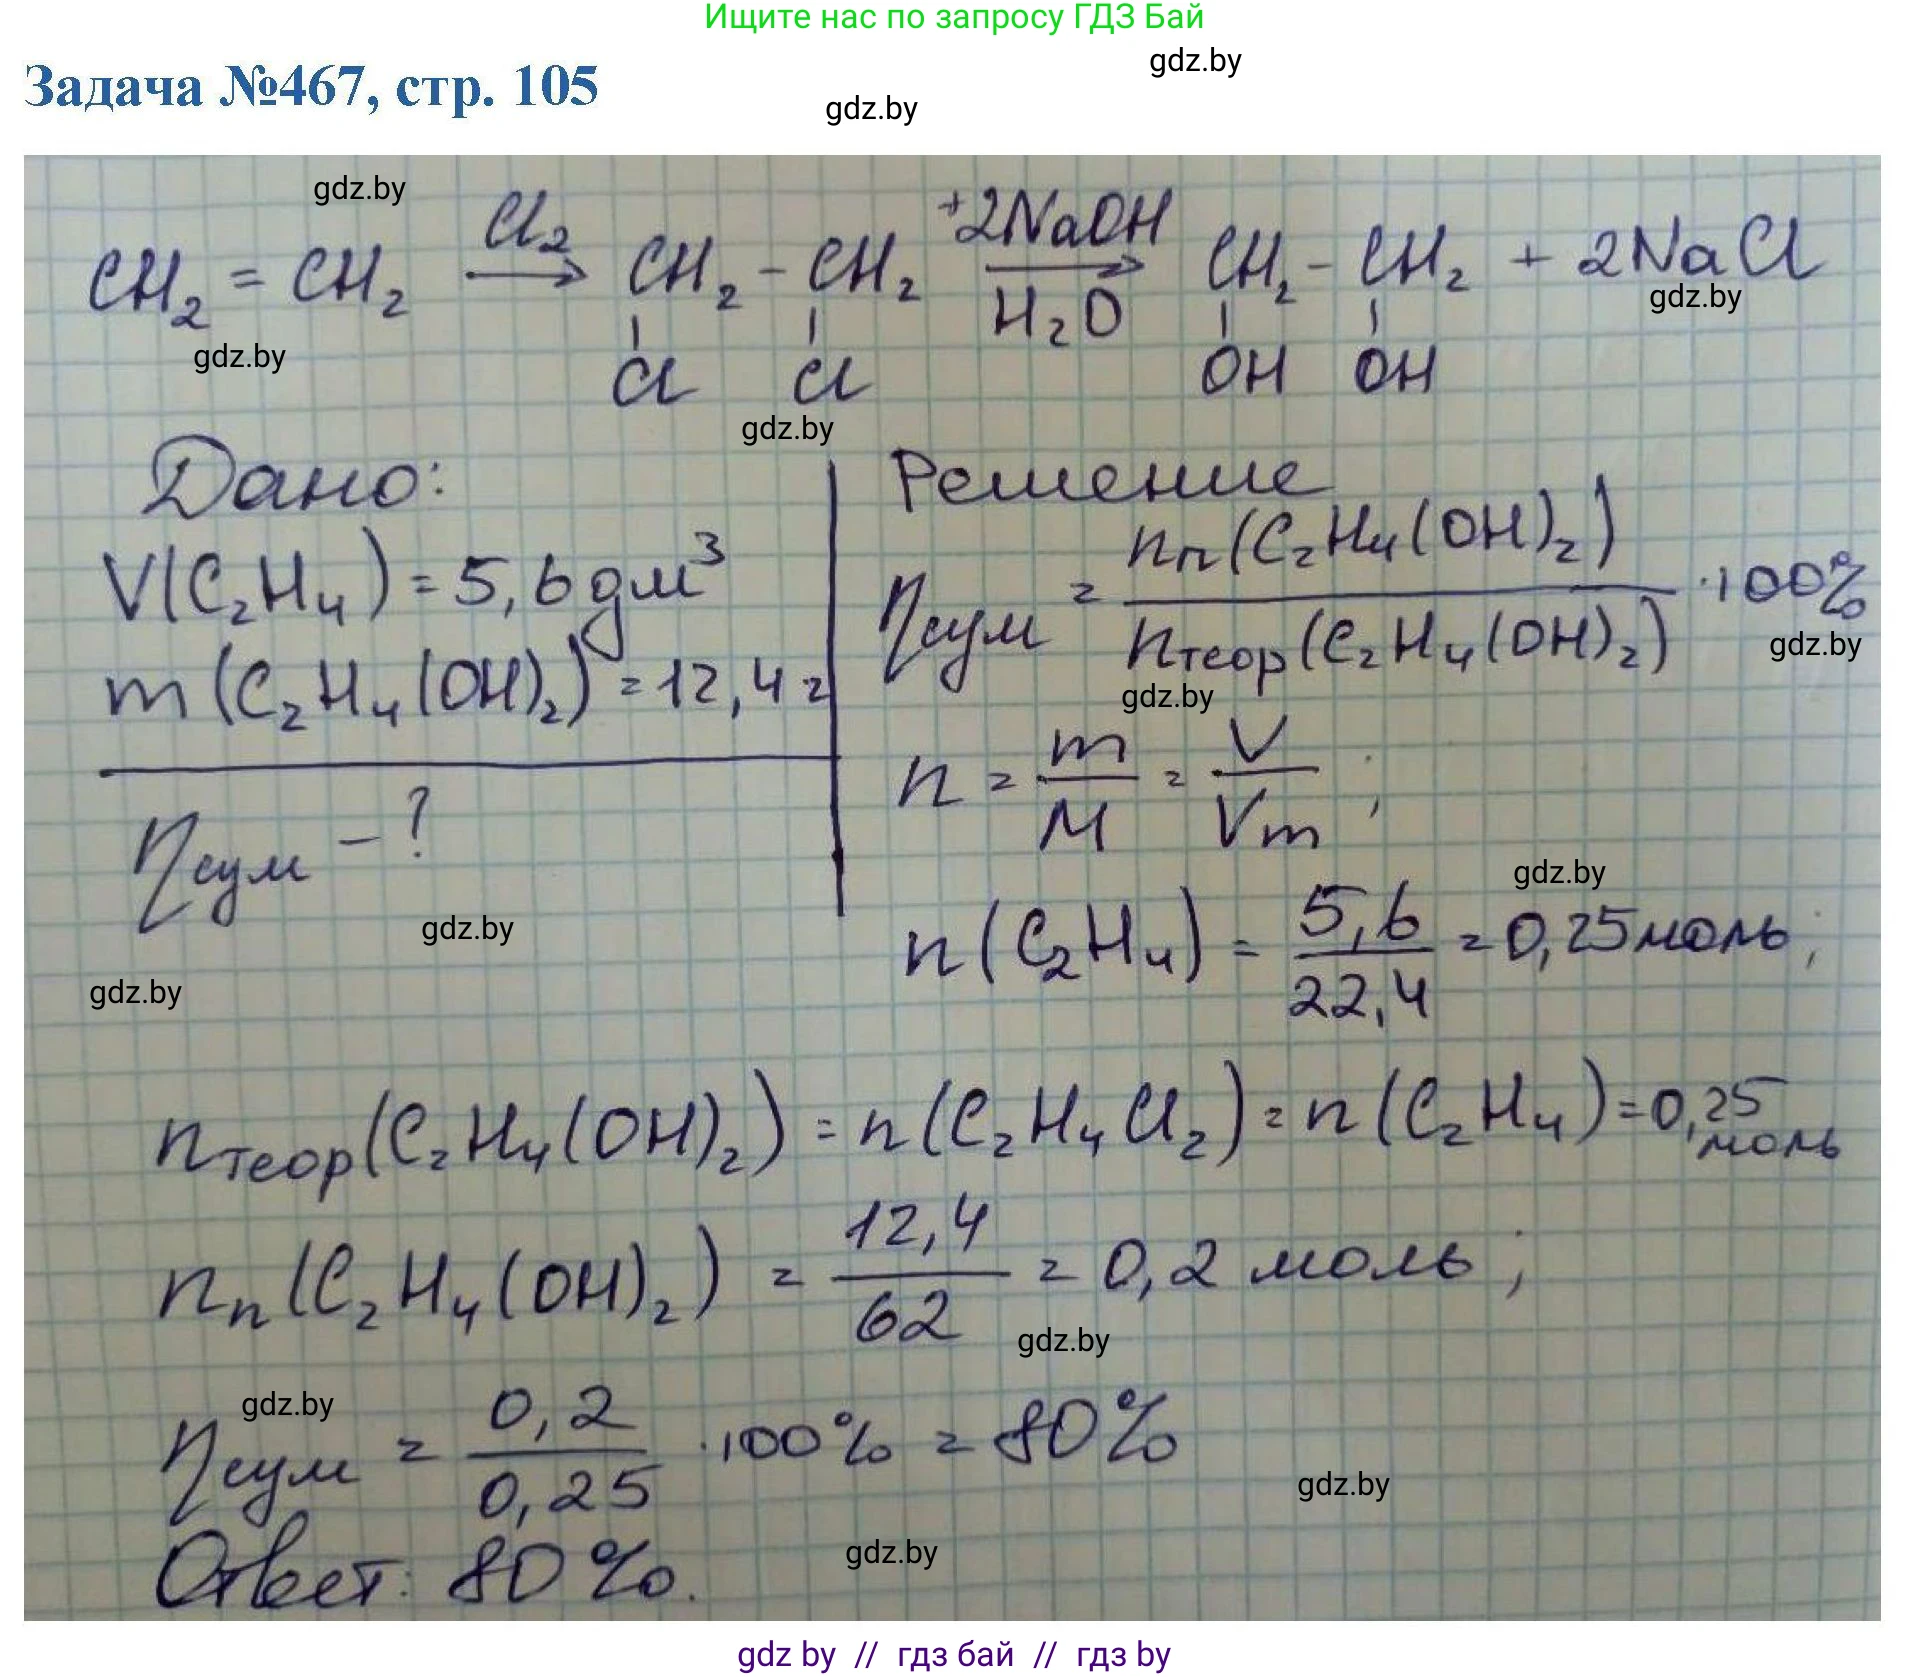 Ищите нас по запросу ГДЗ Бай
gdz.by
Задача №467, стр. 105
gdz.by
gdz.by
CH₂ = CH₂ →(Cl₂) CH₂ - CH₂ →(+2NaOH / H₂O) CH₂ - CH₂ + 2NaCl
gdz.by
gdz.by
Cl Cl OH OH
gdz.by
Дано:
V(C₂H₄) = 5,6 дм³
m(C₂H₄(OH)₂) = 12,4 г
ηсум - ?
Решение
ηсум = nп(C₂H₄(OH)₂) / nтеор(C₂H₄(OH)₂) · 100%
gdz.by
gdz.by
n = m/M = V/Vm ;
gdz.by
gdz.by
n(C₂H₄) = 5,6/22,4 = 0,25 моль ;
gdz.by
nтеор(C₂H₄(OH)₂) = n(C₂H₄Cl₂) = n(C₂H₄) = 0,25 моль
nп(C₂H₄(OH)₂) = 12,4/62 = 0,2 моль ;
gdz.by
gdz.by
ηсум = 0,2/0,25 · 100% = 80%
gdz.by
gdz.by
Ответ: 80%.
gdz by // гдз бай // гдз by